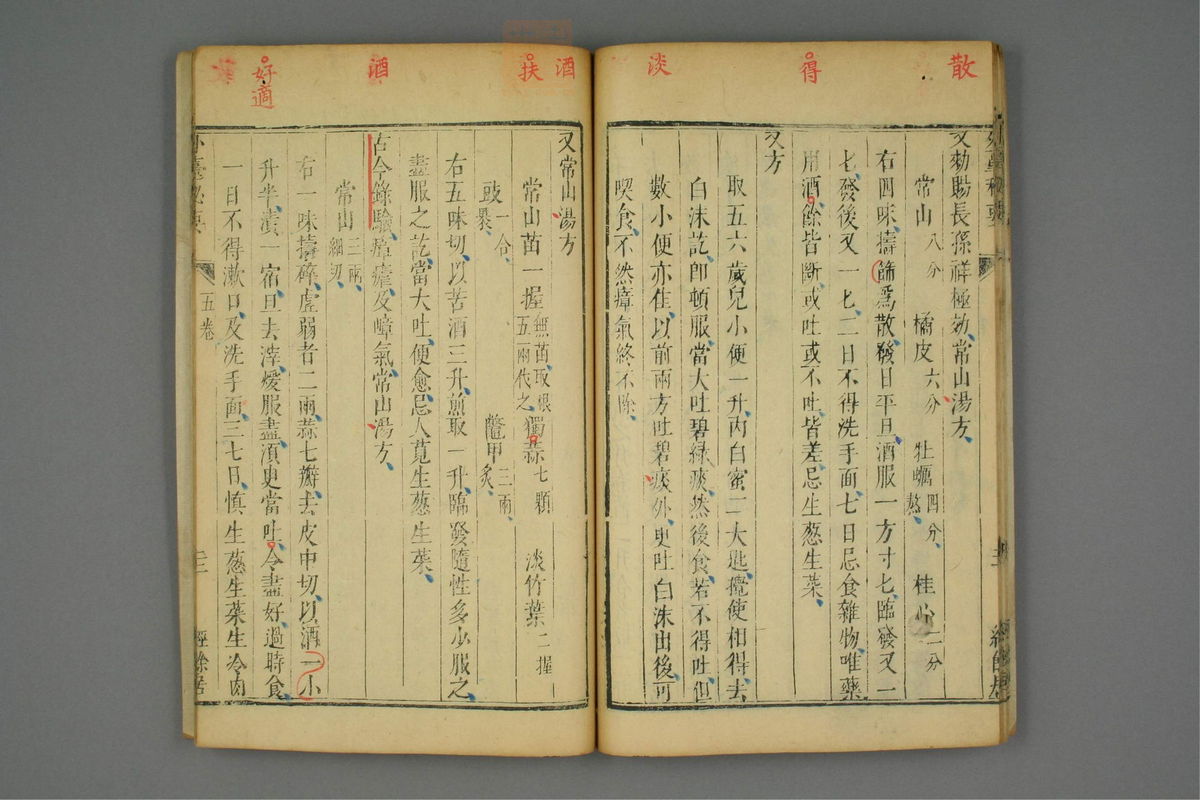 散
得
淡
又勑賜長孫祥極効常山湯方
常山八分 橘皮六分 牡蠣四分熬 桂心二分
右四味擣篩爲散發日平旦酒服一方寸匕臨發又一
匕發後又一匕二日不得洗手面七日忌食雜物唯藥
用酒餘皆斷或吐或不吐皆差忌生葱生菜
又方
取五六歲兒小便一升內白蜜二大匙攪使相得去
白沫訖卽頓服當大吐碧綠痰然後食若不得吐但
數小便亦佳以前兩方吐碧痰外更吐白沫出後可
喫食不然瘴氣終不除
酒
扶
酒
好適
又常山湯方
常山苗一握無苗取根五兩代之 獨蒜七顆 淡竹葉二握
豉一合暴 鼈甲二兩炙
右五味切以苦酒三升煎取一升臨發隨性多少服之
盡服之訖當大吐便愈忌人莧生葱生菜
古今錄驗瘧及嶂氣常山湯方
常山三兩細切
右一味擣碎虛弱者二兩蒜七瓣去皮中切以酒一小
升半漬一宿旦去滓煖服盡須臾當吐令盡好過時食
一日不得漱口及洗手面三七日慎生葱生菜生冷肉
五卷
三
經餘居